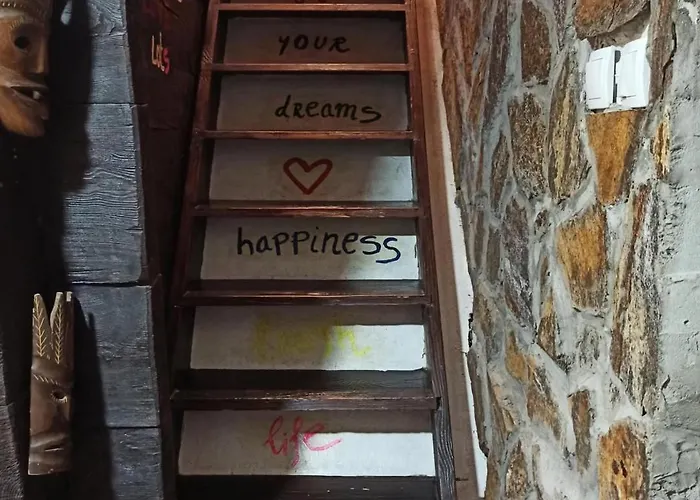 YOUR
dreams
happiness
life